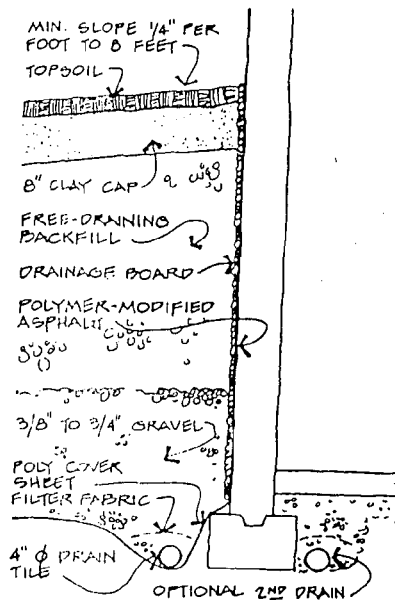 MIN. SLOPE 1/4" PER
FOOT TO 8 FEET
TOPSOIL
8" CLAY CAP
FREE-DRAINING
BACKFILL
DRAINAGE BOARD
POLYMER-MODIFIED
ASPHALT
3/8" TO 3/4" GRAVEL
POLY COVER
SHEET
FILTER FABRIC
4" Φ DRAIN
TILE
OPTIONAL 2ND DRAIN